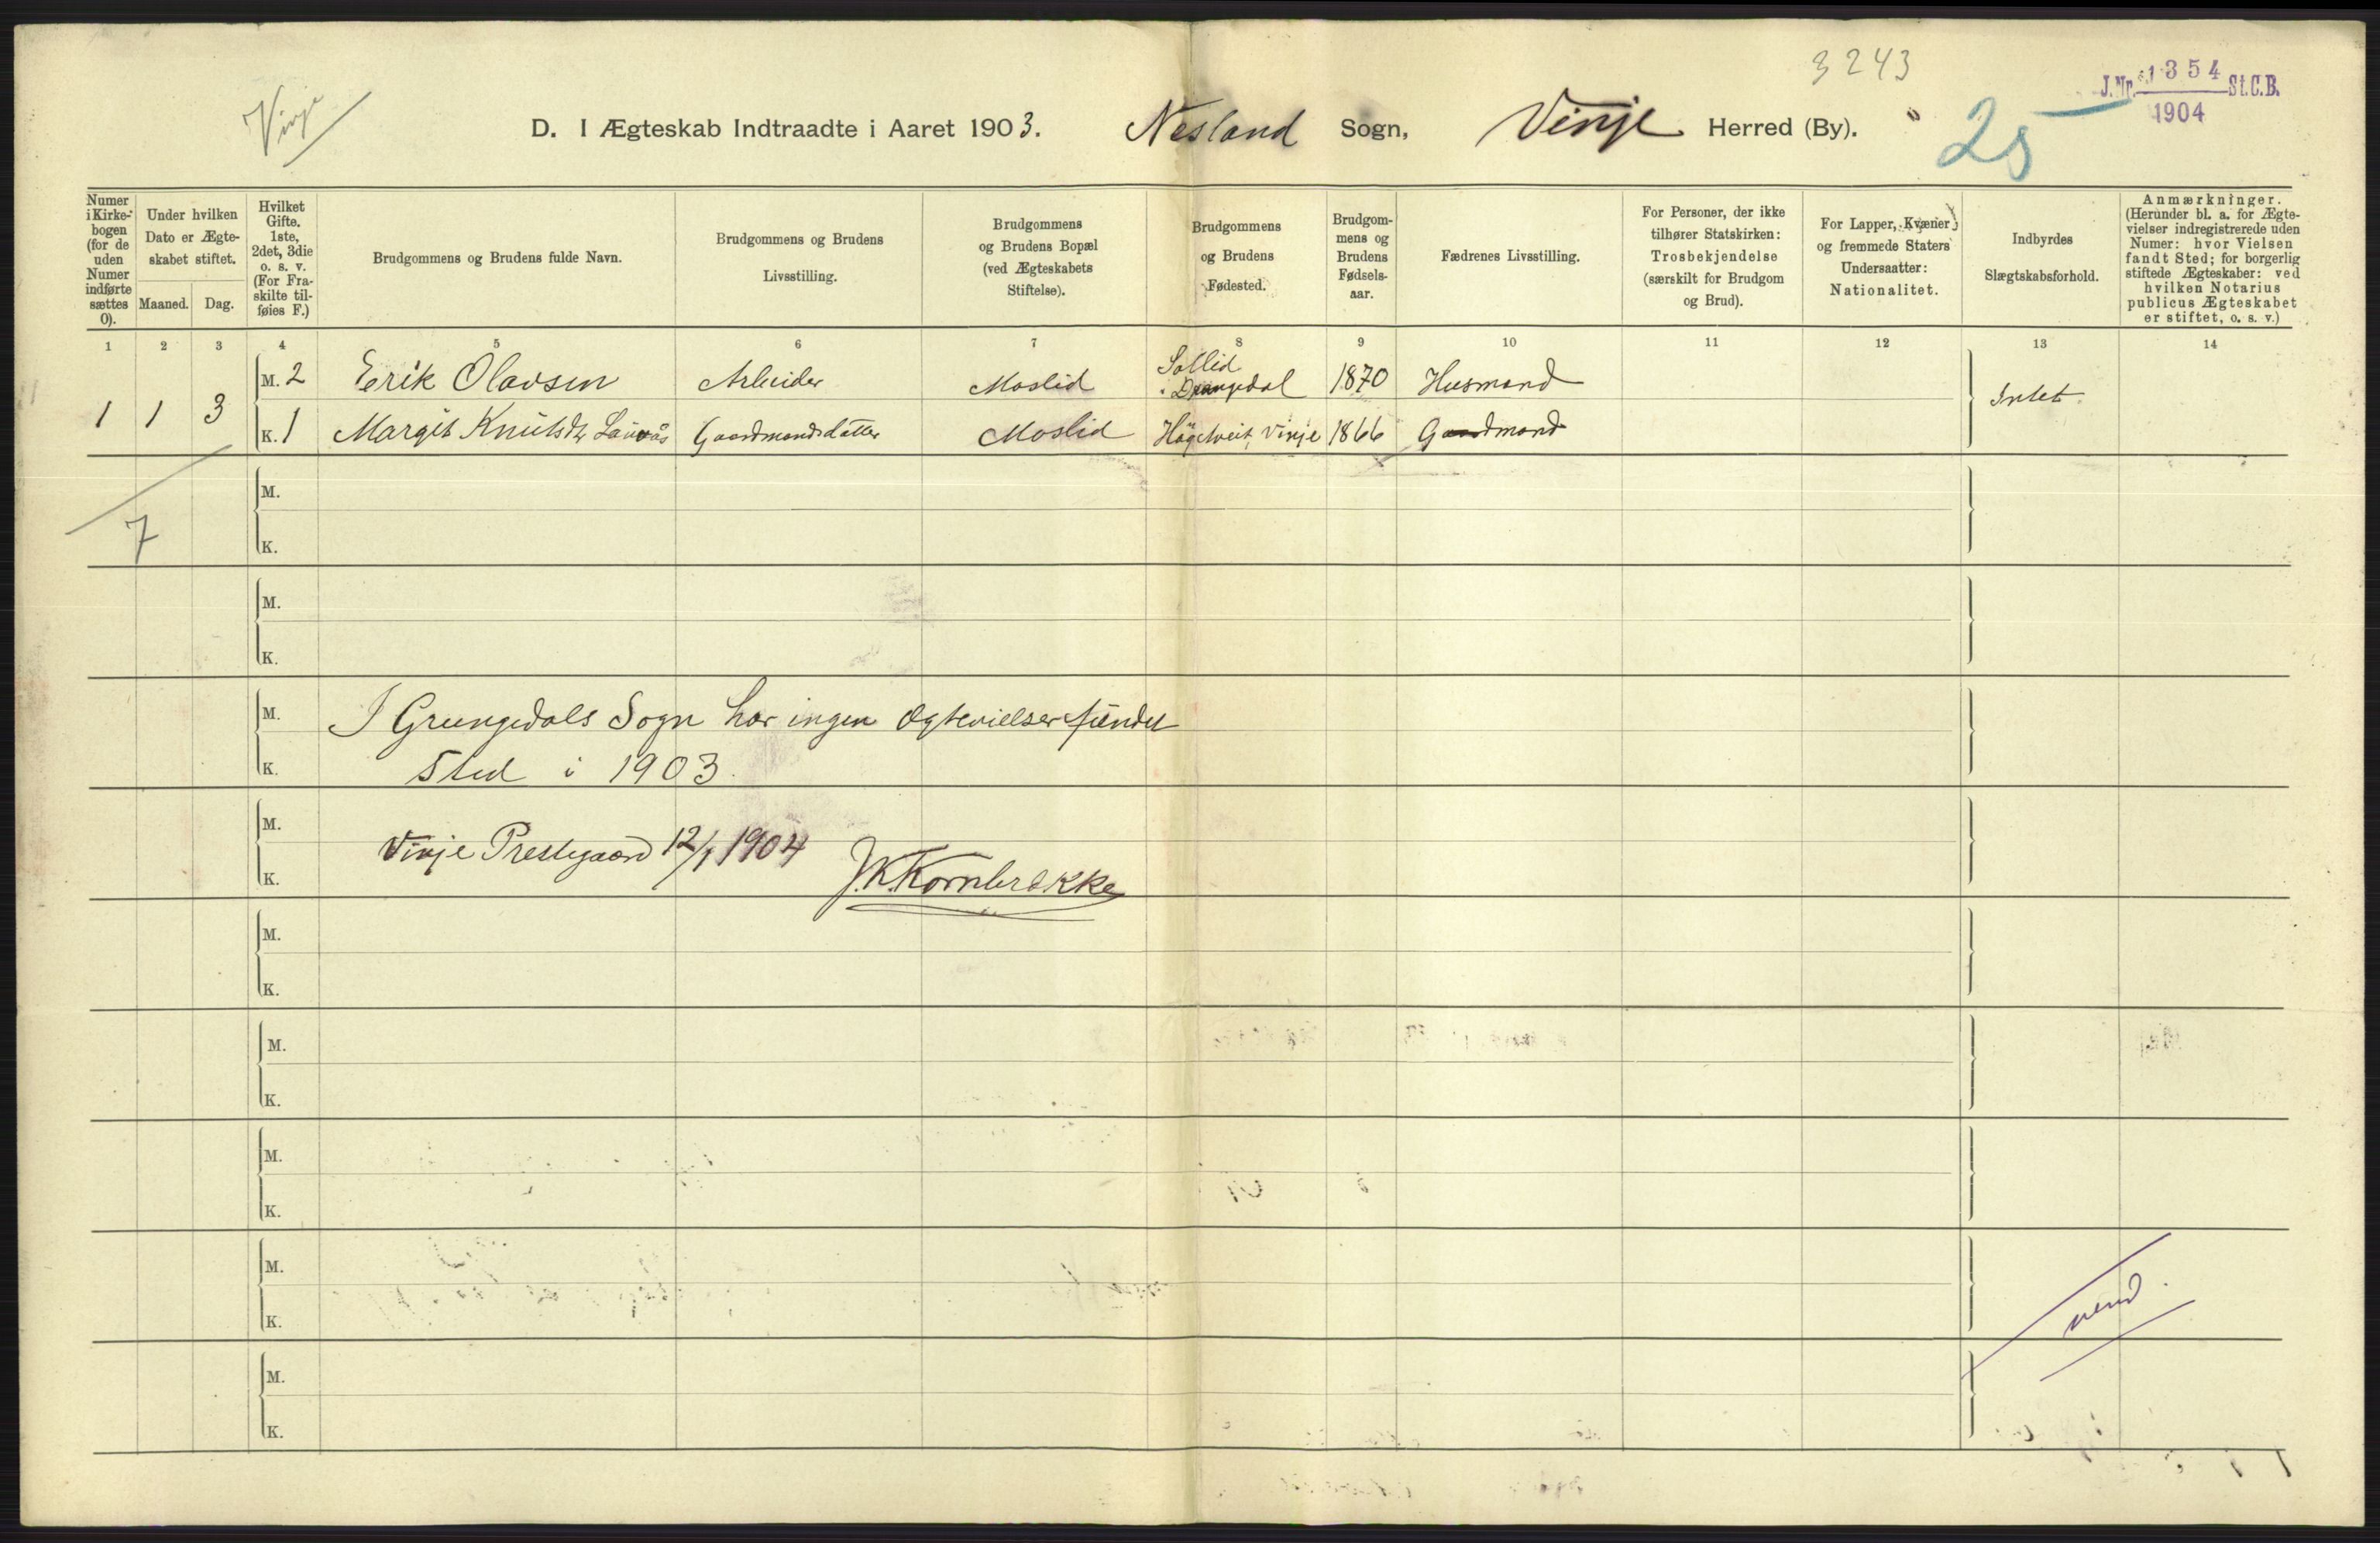 3243
J.Nr. 1354 St.C.B.
1904
Vinje
D. I Ægteskab Indtraadte i Aaret 1903. Nesland Sogn, Vinje Herred (By).
25
Numer i Kirkebogen (for de uden Numer indførte sættes 0).
Under hvilken Dato er Ægteskabet stiftet.
Maaned. Dag.
Hvilket Gifte. 1ste, 2det, 3die o. s. v. (For Fraskilte tilføies F.)
Brudgommens og Brudens fulde Navn.
Brudgommens og Brudens Livsstilling.
Brudgommens og Brudens Bopæl (ved Ægteskabets Stiftelse).
Brudgommens og Brudens Fødested.
Brudgommens og Brudens Fødselsaar.
Fædrenes Livsstilling.
For Personer, der ikke tilhører Statskirken: Trosbekjendelse (særskilt for Brudgom og Brud).
For Lapper, Kvæner og fremmede Staters Undersaatter: Nationalitet.
Indbyrdes Slægtskabsforhold.
Anmærkninger. (Herunder bl. a. for Ægtevielser indregistrerede uden Numer: hvor Vielsen fandt Sted; for borgerlig stiftede Ægteskaber: ved hvilken Notarius publicus Ægteskabet er stiftet, o. s. v.)
1 2 3 4 5 6 7 8 9 10 11 12 13 14
M. 2 Erik Olavsen Arbeider Moslid Sollid i Drangedal 1870 Husmand
1 1 3 Intet
K. 1 Margit Knutsdtr Lauvås Gaardmandsdatter Moslid Högetveit, Vinje 1866 Gaardmand
M.
7
K.
M.
K.
M. I Grungedals Sogn har ingen Ægtevielser fundet
K. Sted i 1903.
M.
Vinje Prestegaard 12/1 1904
K. J.K. Kornbrekke
M.
K.
M.
K.
M.
K.
M.
K.
M.
K.